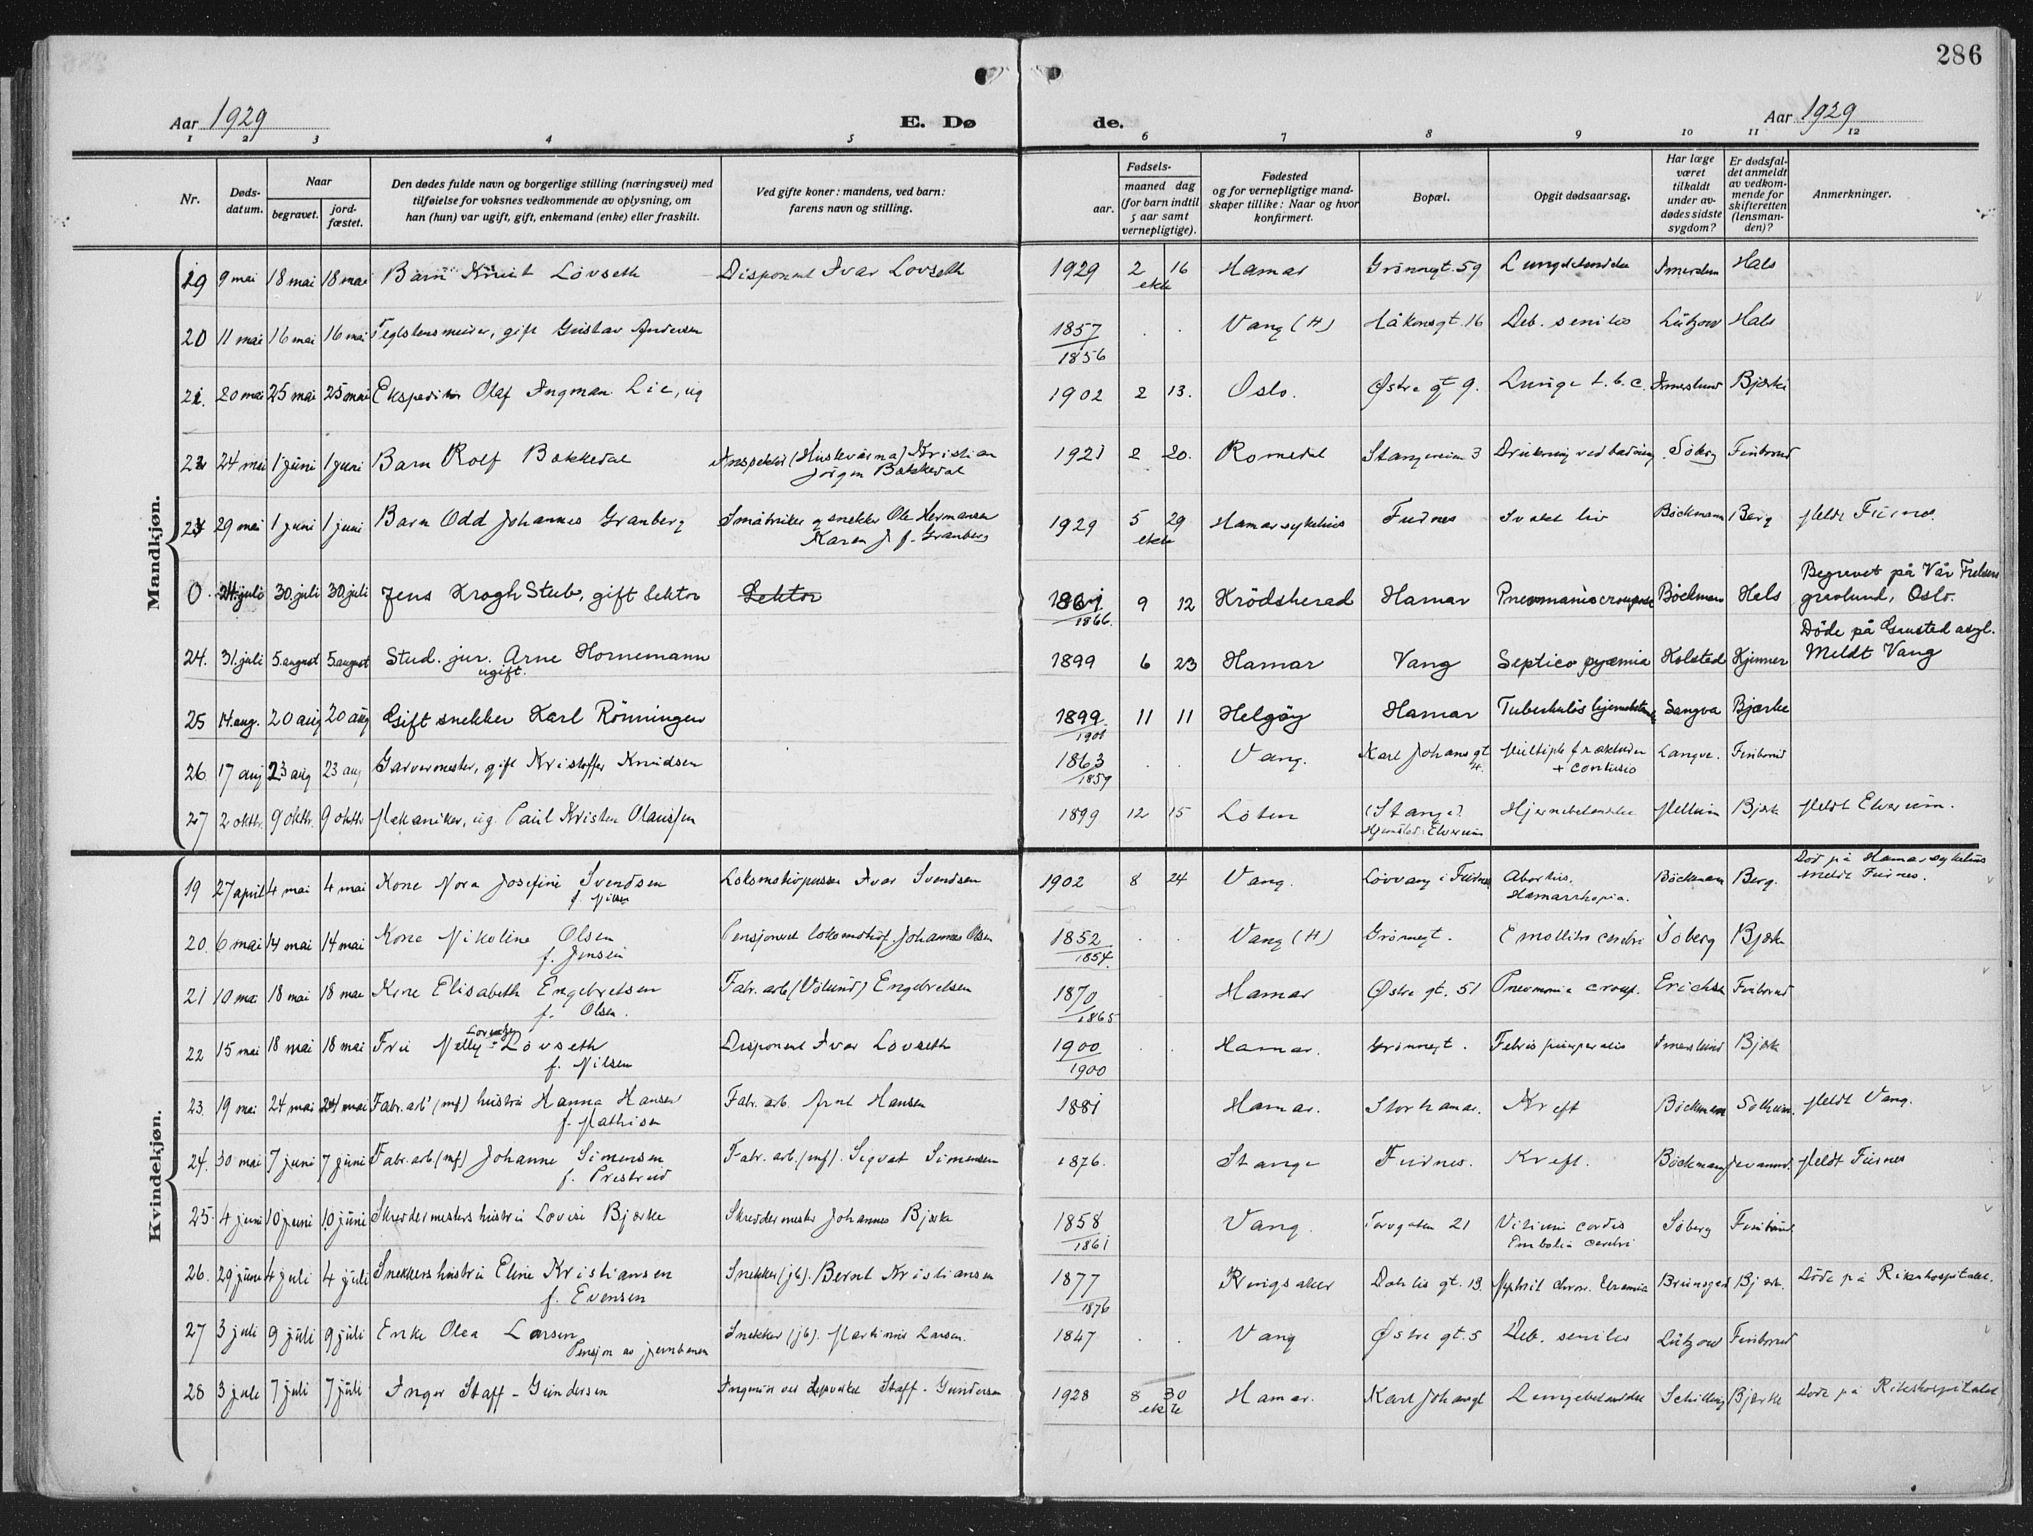 286
Aar 1929
E. Dø
de.
Aar 1929
1 2 3 4 5 6 7 8 9 10 11 12
Nr.
Døds-
datum.
Naar
begravet.
jord-
fæstet.
Den dødes fulde navn og borgerlige stilling (næringsvei) med
tilføielse for voksnes vedkommende av oplysning, om
han (hun) var ugift, gift, enkemand (enke) eller fraskilt.
Ved gifte koner: mandens, ved barn:
farens navn og stilling.
Fødsels-
aar.
maaned dag
(for barn indtil
5 aar samt
vernepligtige).
Fødested
og for vernepligtige mand-
skaper tillike: Naar og hvor
konfirmert.
Bopæl.
Opgit dødsaarsag.
Har læge
været
tilkaldt
under av-
dødes sidste
sygdom?
Er dødsfal-
det anmeldt
av vedkom-
mende for
skifteretten
(lensman-
den)?
Anmerkninger.
Mandkjøn.
19 9 mai 18 mai 18 mai Barn Knut Lövseth Disponent Ivar Lovseth 1929 2 16 Hamar Grönnegt. 59 Hals
ekte
20 11 mai 16 mai 16 mai gift Gustav Andersen 1857 . . Vang (H) Håkonsgt. 16 Deb. senilis Lützow Hals
1856
21. 20 mai 25 mai 25 mai Ekspeditör Olaf Ingman Lie, ug 1902 2 13. Oslo. Østre gt 9. Lunge t.b.c. Imerslund Bjærke
22 24 mai 1 juni 1 juni Barn Rolf Bakkedal Inspektör Kristian 1921 2 20. Romedal Stangeveien 3 Drukning ved badning Söberg Finborud
Jörgen Bakkedal
23 29 mai 1 juni 1 juni Barn Odd Johannes Granberg Småbruker og snekker Ole Hermansen 1929 5 29 Hamar sykehus Furnes Svakt liv Böckmann Berg Meldt Furnes.
Karen J. f. Granberg ekte
0. 24. juli 30. juli 30. juli Jens Krogh Steub, gift Lektor Lektor 1861 9 12 Krödsherad Hamar Pneumania crouposa Böckman Hals Begravet på Vår Frelsers
1866. gravlund, Oslo.
24. 31. juli 5. august 5. august Stud. jur. Arne Hornemann 1899 6 23 Hamar Vang Septico pyæmia Holsted Kjenner Döde på Gaustad asyl.
ugift. Meldt Vang
25 14. aug. 20 aug 20 aug Gift snekker Karl Rönningen 1899 11 11 Helgöy Hamar Tuberkulös Sangva Bjærke
1901
26. 17 aug 23 aug 23 aug Garvermester, gift Kristoffer Knudsen 1863 . . Vang. Karl Johans gt Multiple frakturer Langva. Finborud
1859 + contusio
27 2 oktbr. 9 oktbr. 9 oktbr Mekaniker, ug. Paul Kristen Olaussen 1899 12 15 Löten (Stange) Hjernebetændelse Mellum Bjærke Meldt Elverum.
Elverum
Kvindekjøn.
19 27 april 4 mai 4 mai Kone Nora Josefine Svendsen Lokomotivpusser Ivar Svendsen 1902 8 24 Vang. Lövvang i Furnes Abortus. Böckmann Berg. Död på Hamar sykehus
f. Nilsen Hæmarrhagia. Meldt Furnes.
20. 6 mai 14 mai 14 mai Kone Nikoline Olsen Pensjonert lokomotivf. Johannes Olsen 1852 . . Vang (H) Grönnegt. Emollitio cerebri Soberg Bjærke
f. Jensen 1854.
21 10 mai 18 mai 18 mai Kone Elisabeth Engebretsen Fabr. arb. (Völund) Engebretsen 1870 Hamar Østre gt. 51 Pneumonia croup. Erichsen Finborud
f. Olsen. 1865
22 15 mai 18 mai 18 mai Fru Nelly Lövseth Disponent Ivar Lövseth 1900 . . Hamar. Grönnegt. Febris puerperalis Imerslund Bjærke
f. Nilsen 1900
23. 19 mai 24 mai 24 mai Fabr. arb (mf) hustru Hanna Hansen Fabr. arb. Arnt Hansen 1881 Hamar. Storhamar. Kreft Böckman Solheim. Meldt Vang.
f. Mathisen
24. 30 mai 7 juni 7 juni Fabr. arb (mf) Johanne Simensen Fabr. arb. (mf). Sigvat Simensen 1876. Stange Furnes. Kreft. Böckman Meldt Furnes
f. Prestrud
25. 4 juni 10 juni 10 juni Skreddermesters hustru Lovise Bjærke Skreddermester Johannes Bjærke 1858 Vang. Torvgaten 21 Vitium cordis Söberg Finborud
1861 Embolia cerebri
26. 29 juni 4 juli 4 juli Snekkers hustru Eline Kristiansen Snekker (jb). Bernt Kristiansen 1877 Ringsaker gt. 13. Nephrit chron. Uremia Bjærke. Döde på Rikshospitalet.
f. Evensen 1876
27 3 juli 9 juli 9 juli Enke Olea Larsen Snekker (jb). Martinus Larsen. 1847 . . Vang Østre gt. 5 Deb. senilis Lützow Finborud
Pensjon av jernbanen
28 3 juli 7 juli 7 juli Inger Staff-Gundersen Ingeniör Staff-Gundersen 1928 8 30 Hamar. Karl Johansgt Lungebetændelse Schilling Bjærke Döde på Rikshospitalet
ekte